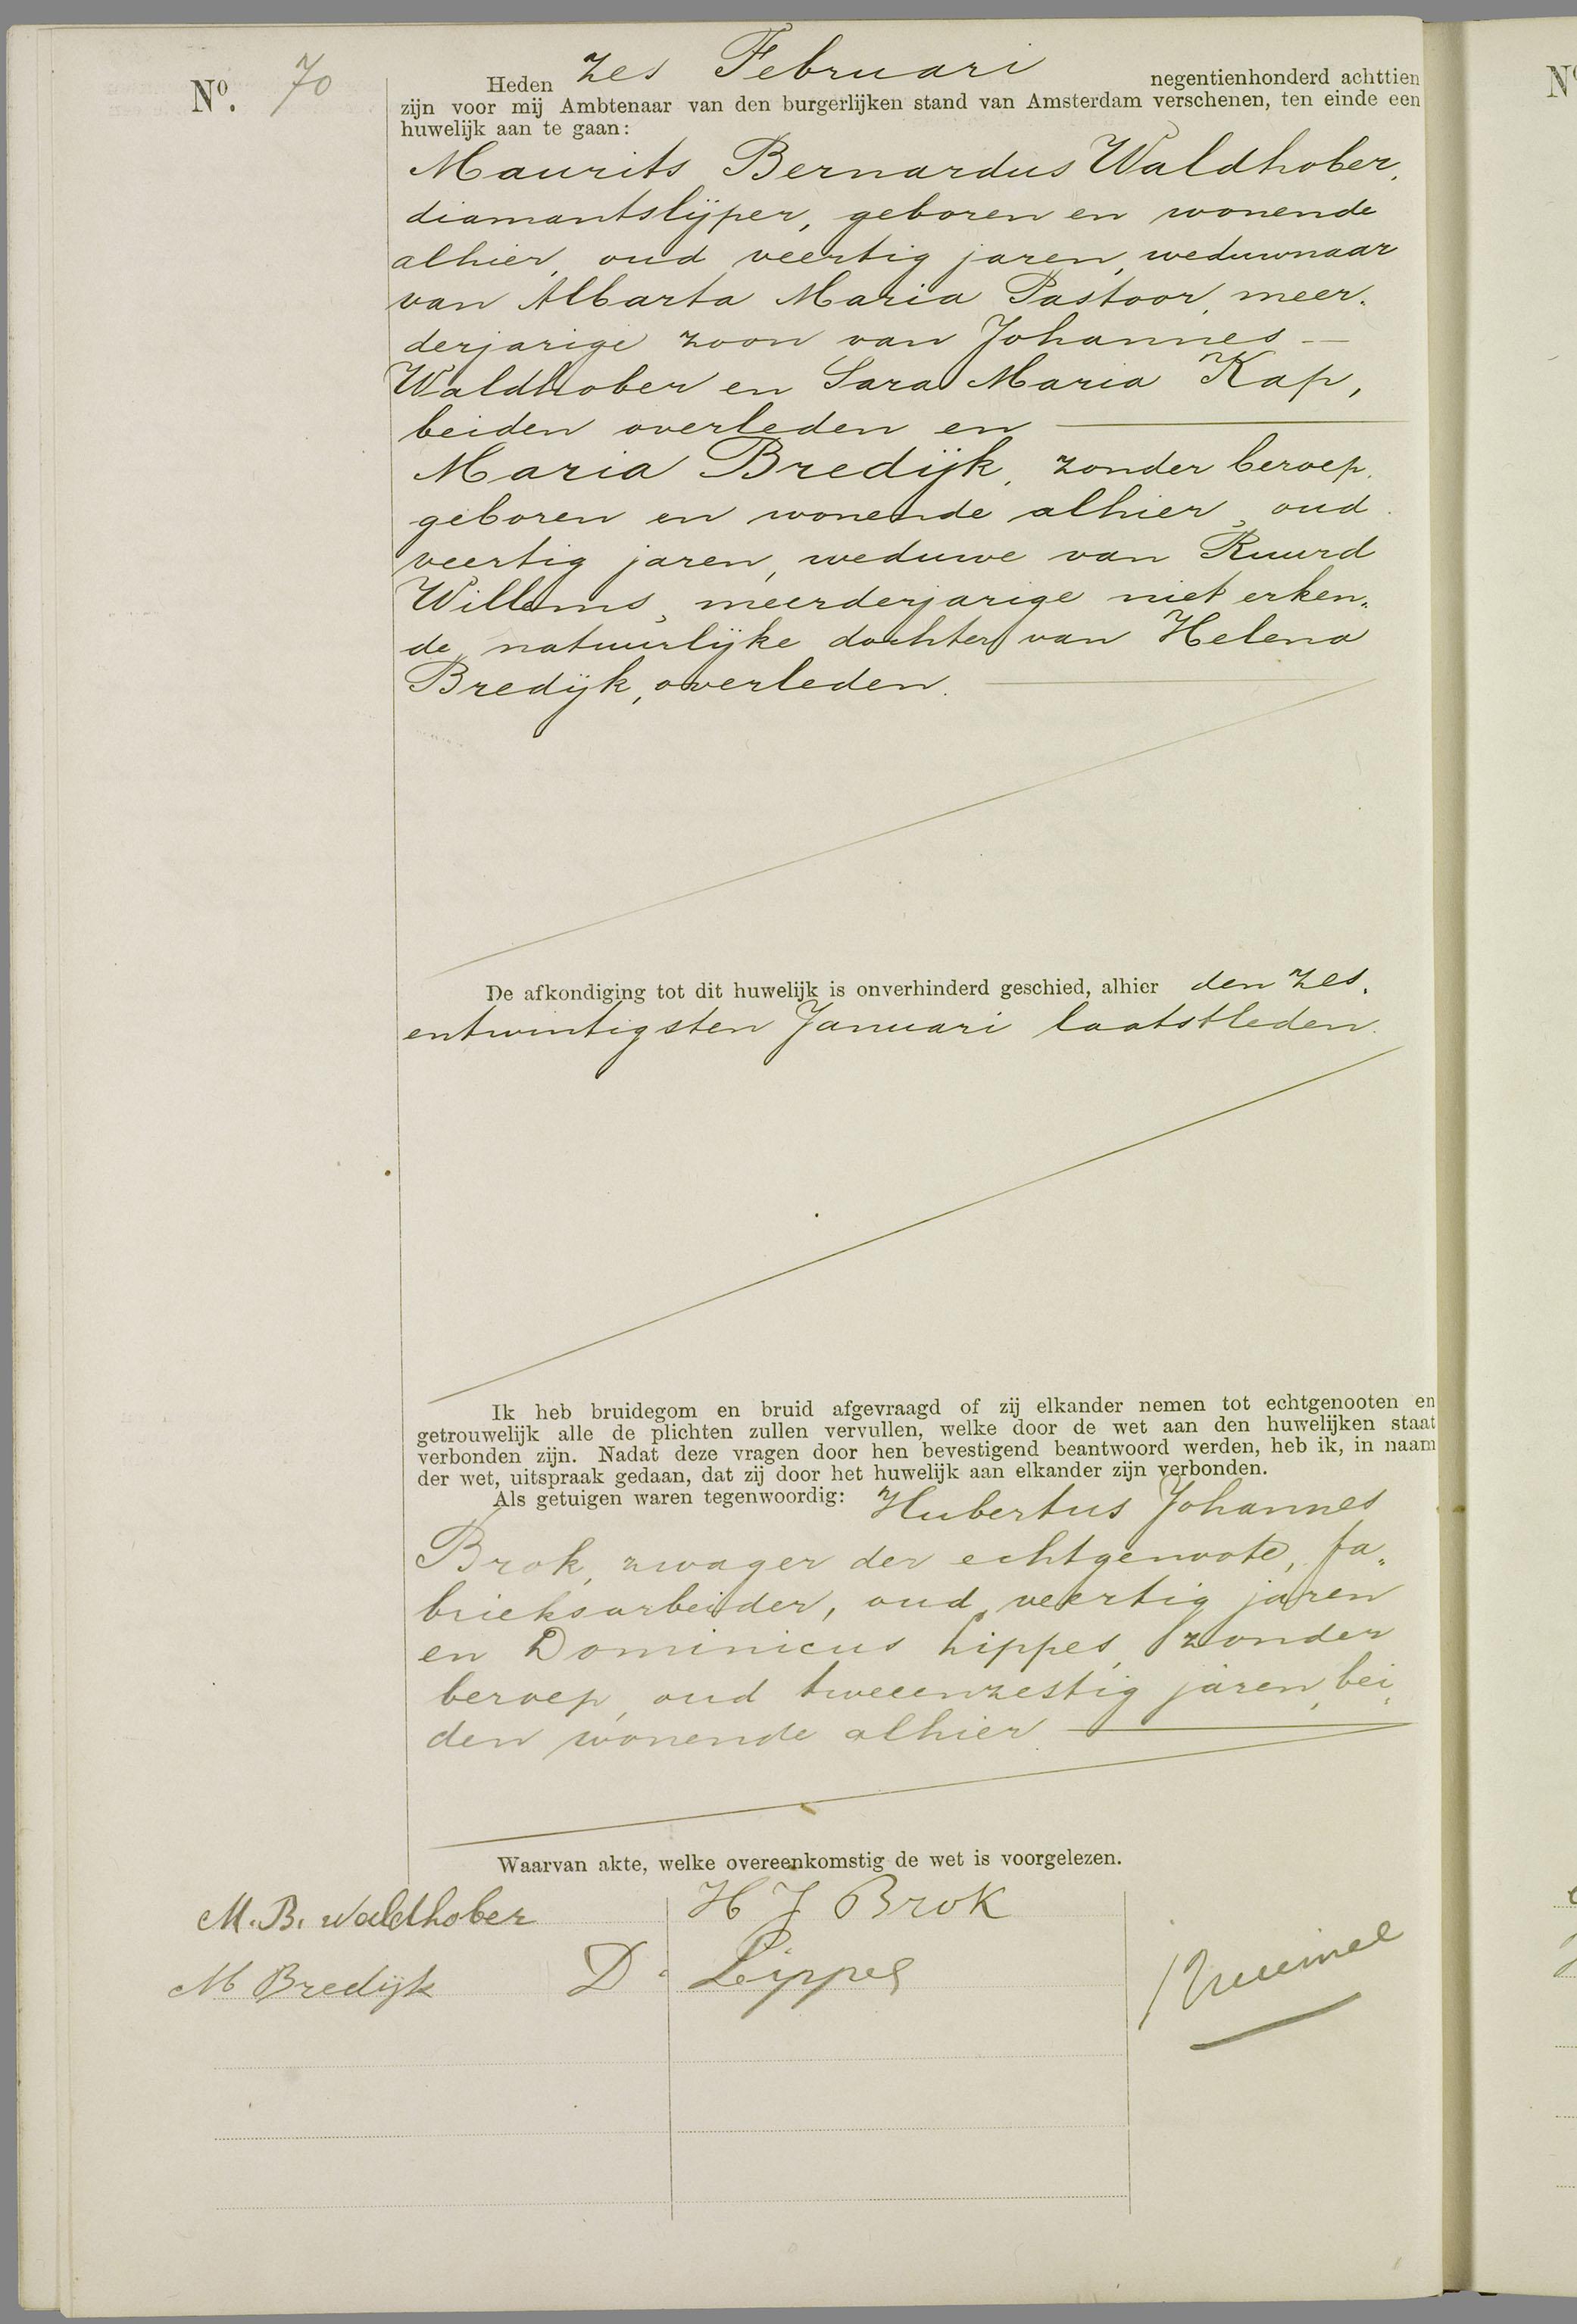 Nº. 70
Heden zes Februari negentienhonderd achttien
zijn voor mij Ambtenaar van den burgerlijken stand van Amsterdam verschenen, ten einde een
huwelijk aan te gaan:
Maurits Bernardus Waldhober,
diamantslijper, geboren en wonende
alhier, oud veertig jaren, weduwnaar
van Albarta Maria Pastoor, meer„
derjarige zoon van Johannes —
Waldhober en Sara Maria Kap,
beiden overleden en —
Maria Bredijk, zonder beroep,
geboren en wonende alhier, oud
veertig jaren, weduwe van Ruurd
Willems, meerderjarige niet erken„
de, natuurlijke dochter van Helena
Bredijk, overleden. —
De afkondiging tot dit huwelijk is onverhinderd geschied, alhier den zes„
entwintigsten Januari laatstleden.
Ik heb bruidegom en bruid afgevraagd of zij elkander nemen tot echtgenooten en
getrouwelijk alle de plichten zullen vervullen, welke door de wet aan den huwelijken staat
verbonden zijn. Nadat deze vragen door hen bevestigend beantwoord werden, heb ik, in naam
der wet, uitspraak gedaan, dat zij door het huwelijk aan elkander zijn verbonden.
Als getuigen waren tegenwoordig: Hubertus Johannes
Brok, zwager der echtgenoote, fa„
brieksarbeider, oud veertig jaren
en Dominicus Lippes, zonder
beroep, oud tweeenzestig jaren, bei„
den wonende alhier. —
Waarvan akte, welke overeenkomstig de wet is voorgelezen.
M. B. Waldhober
H J Brok
M Bredijk
D. Lippes
Nº